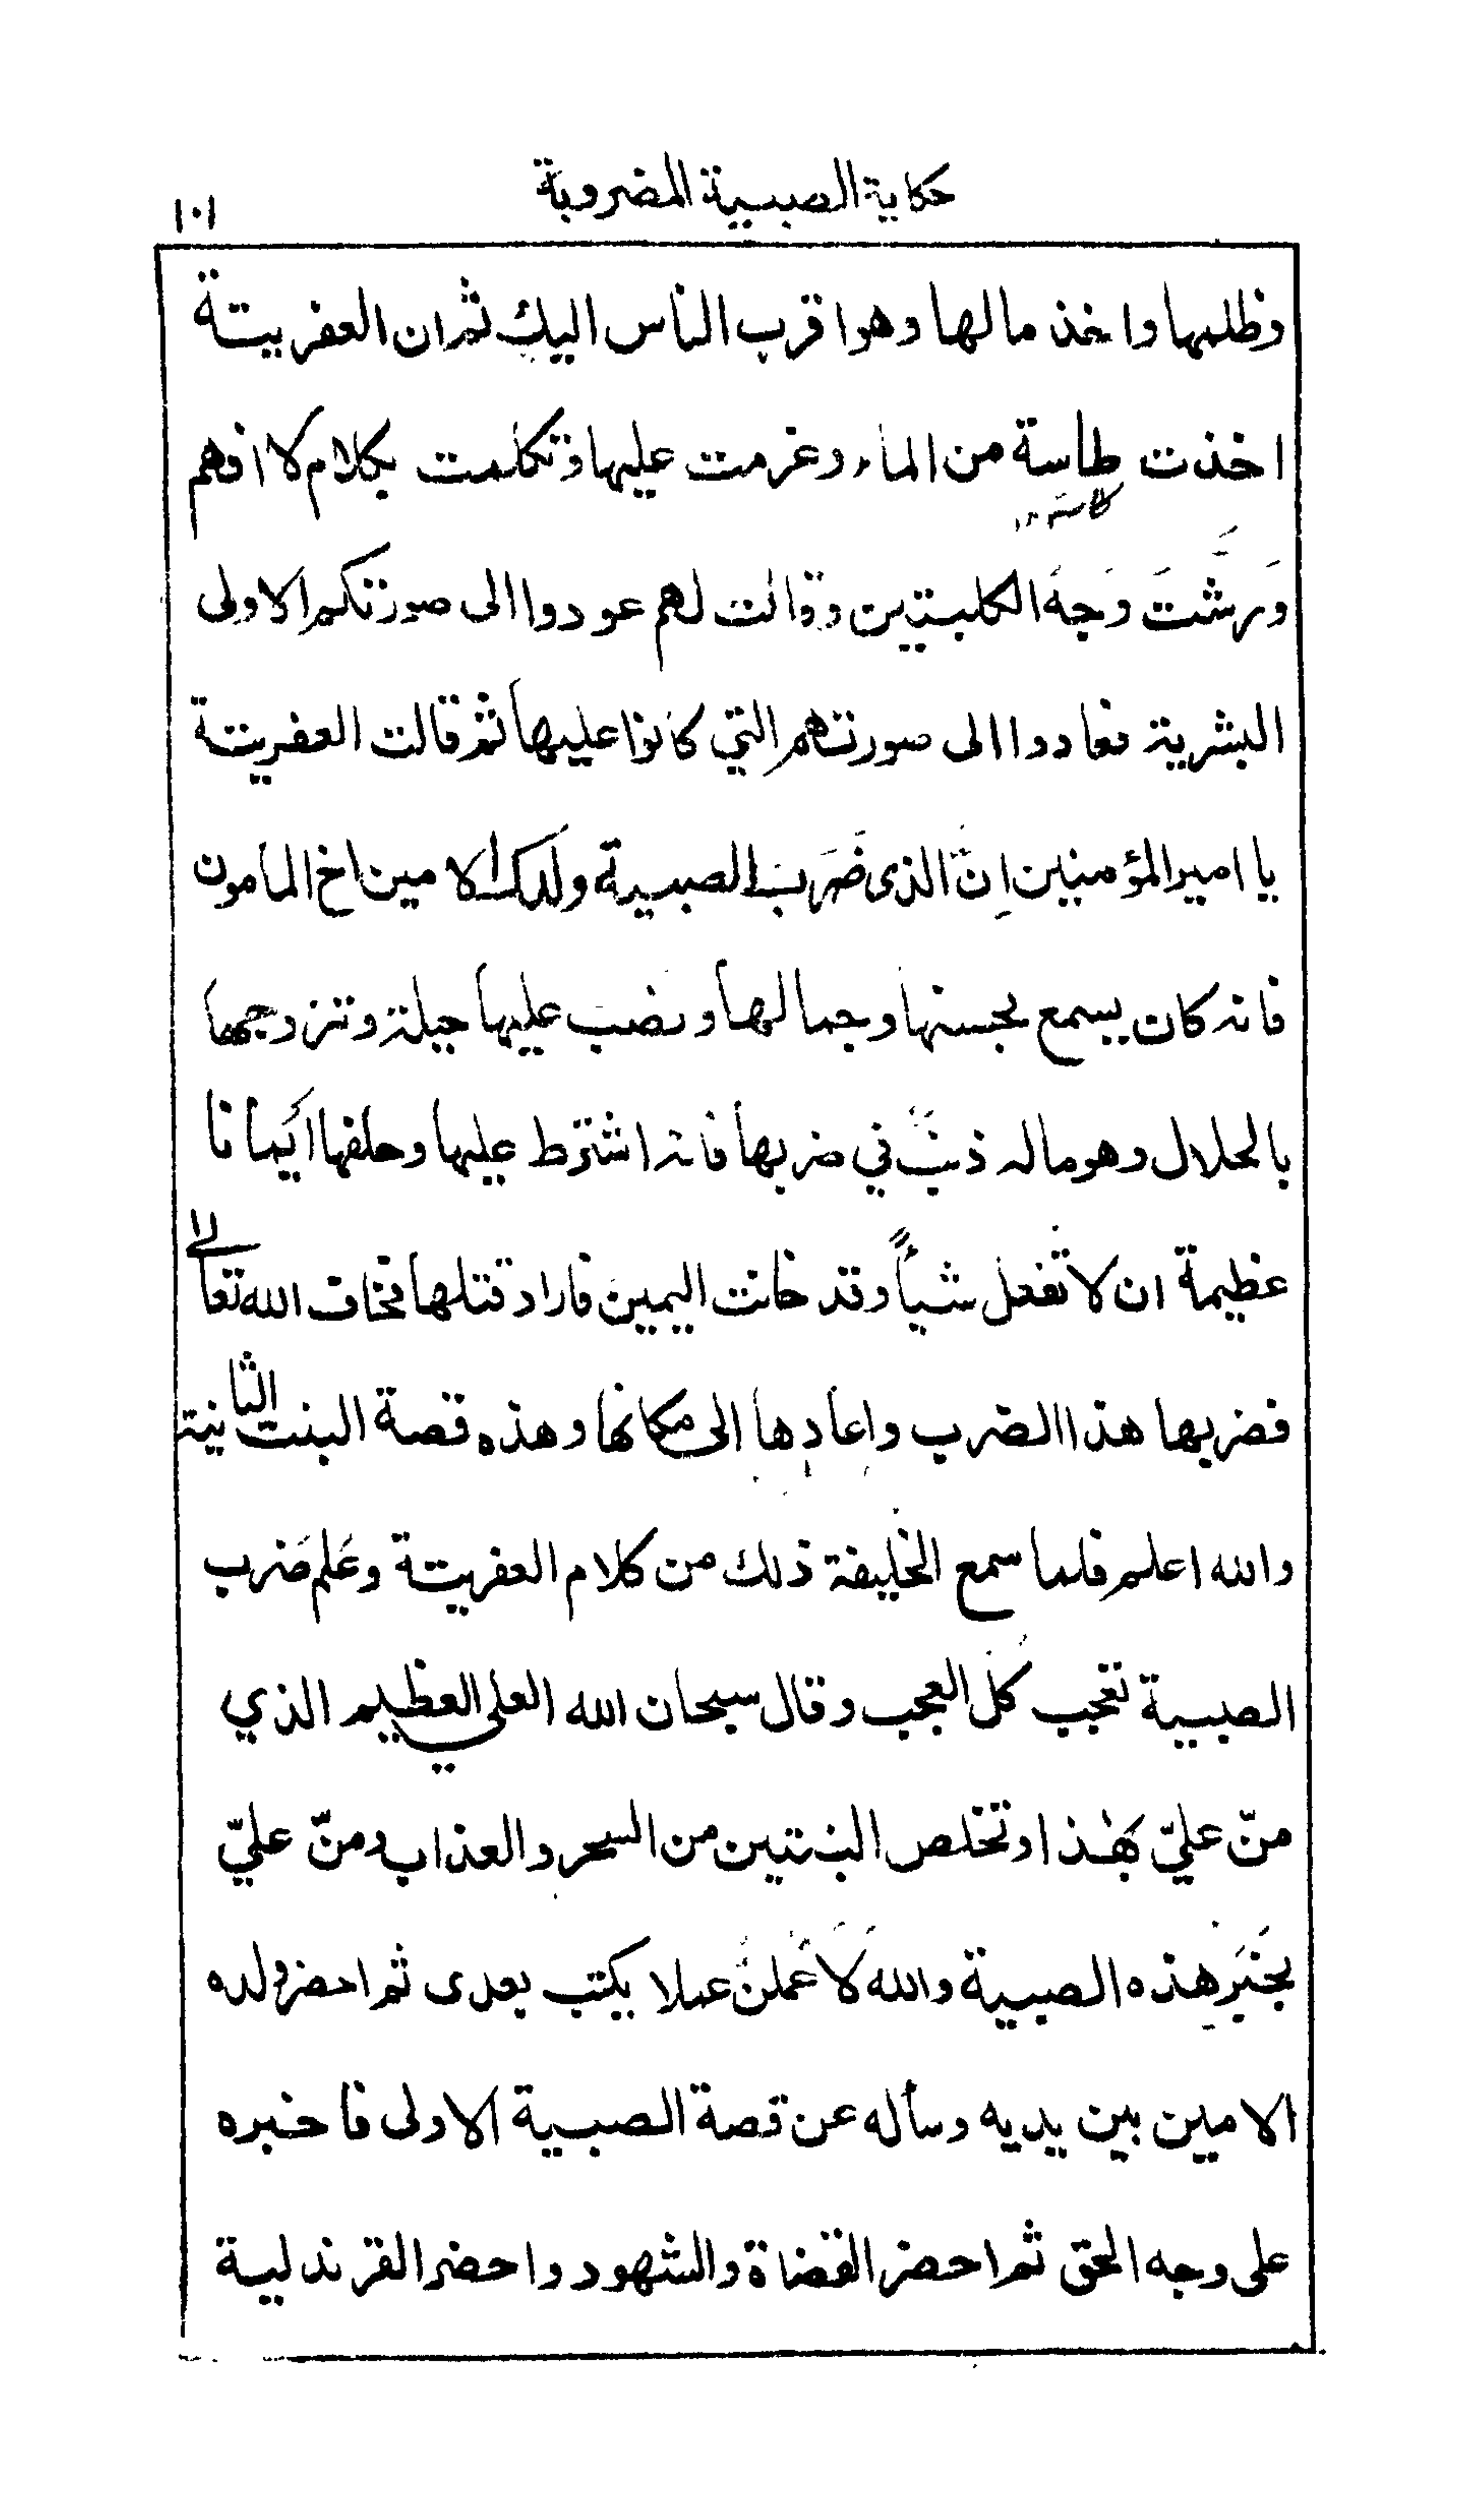 حكاية الصبية المضروبة
١٠١
وظلمها واخذ مالها وهو اقرب الناس اليك ثم ان العفريتة
اخذت طاسة من الماء وعزمت عليها وتكلمت بكلام لا افهم
كاسة
ورشَّتَ وَجهَ الكلبتين وقالت لهم عودوا الى صورتكم الاولى
البشرية فعادوا الى صورتهم التي كانوا عليها ثم قالت العفريتة
يا امير المؤمنين اِنَّ الذى ضَرَبَ الصبية ولدك الامين اخ المأمون
فانه كان يسمع بحسنها وجمالها ونصب عليها حيلة وتزوجها
بالحلال وهو ماله ذنبٌ في ضربها فانه اشترط عليها وحلفها اَيمانا
عظيمة ان لا تفعل شيأً وقد خانت اليمين فاراد قتلها فخاف الله تعالى
فضربها هذا الضرب واعادها الى مكانها وهذه قصة البنت الثانية
والله اعلم فلما سمع الخليفة ذلك من كلام العفريتة وعَلم ضَرب
الصبية تعجب كل العجب وقال سبحان الله العلي العظيم الذي
منّ عليّ بهذا وتخلص البنتين من السحر والعذاب ومنّ عليّ
بخَبَرِ هذه الصبية والله لَاَعْمَلَنَّ عملا يكتب بعدى ثم احضر ولده
الامين بين يديه وسأله عن قصة الصبية الاولى فاخبره
على وجه الحق ثم احضر القضاة والشهود واحضر القرندلية